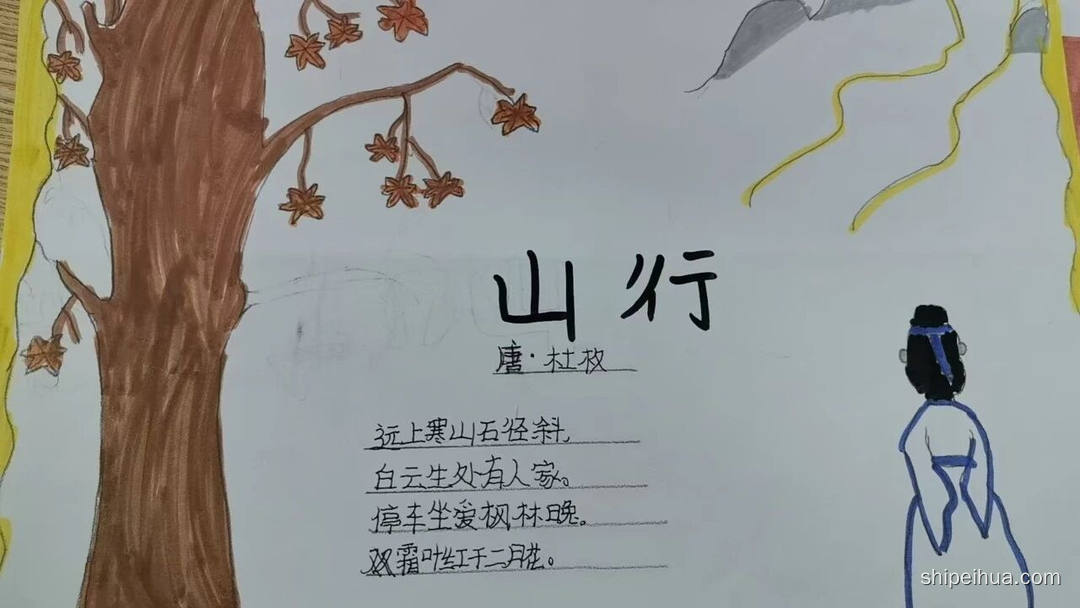 山行
唐·杜牧
远上寒山石径斜,
白云生处有人家。
停车坐爱枫林晚。
霜叶红于二月花。
shipeihua.com